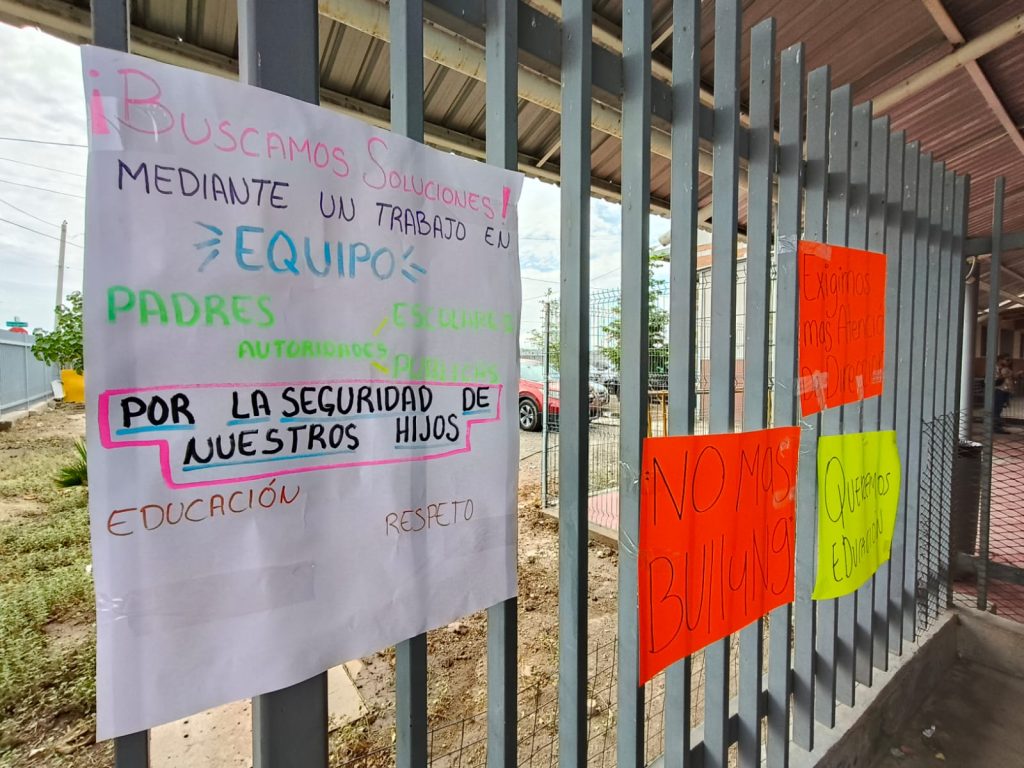 ¡BUSCAMOS SOLUCIONES!
MEDIANTE UN TRABAJO EN
EQUIPO
PADRES ESCOLARES
AUTORIDADES
PUBLICAS
POR LA SEGURIDAD DE
NUESTROS HIJOS
EDUCACIÓN RESPETO
NO MAS
BULLyNg
Exigimos
mas Atención
QUEREMOS
EDUCACION